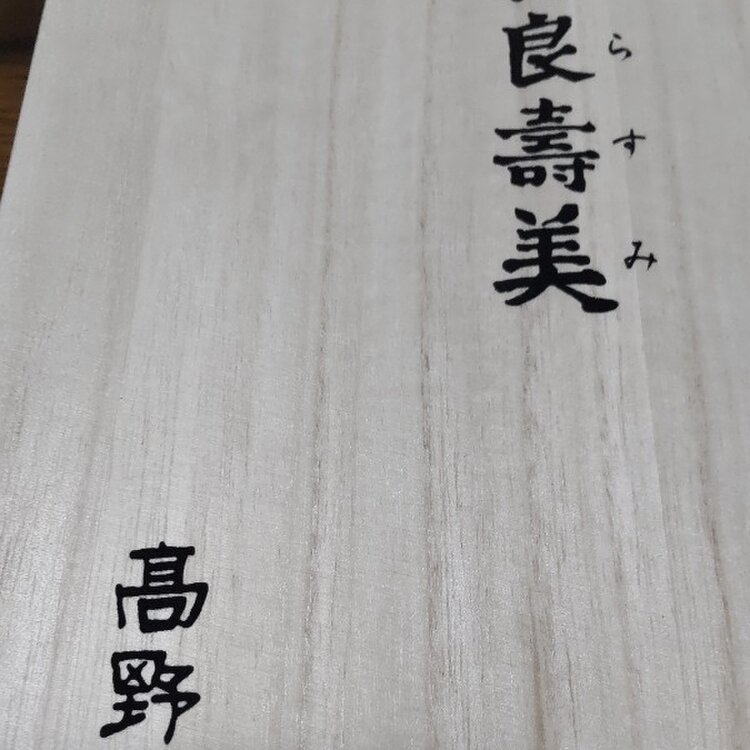 良壽美
らすみ
髙野